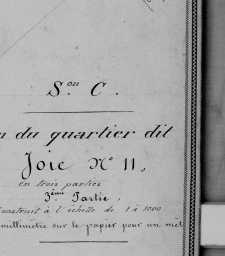 Son C.
n du quartier dit
Joie No 11,
en trois parties
3ème Partie,
Construit à l'échelle de 1 à 1000
millimètre sur le papier pour un mèt